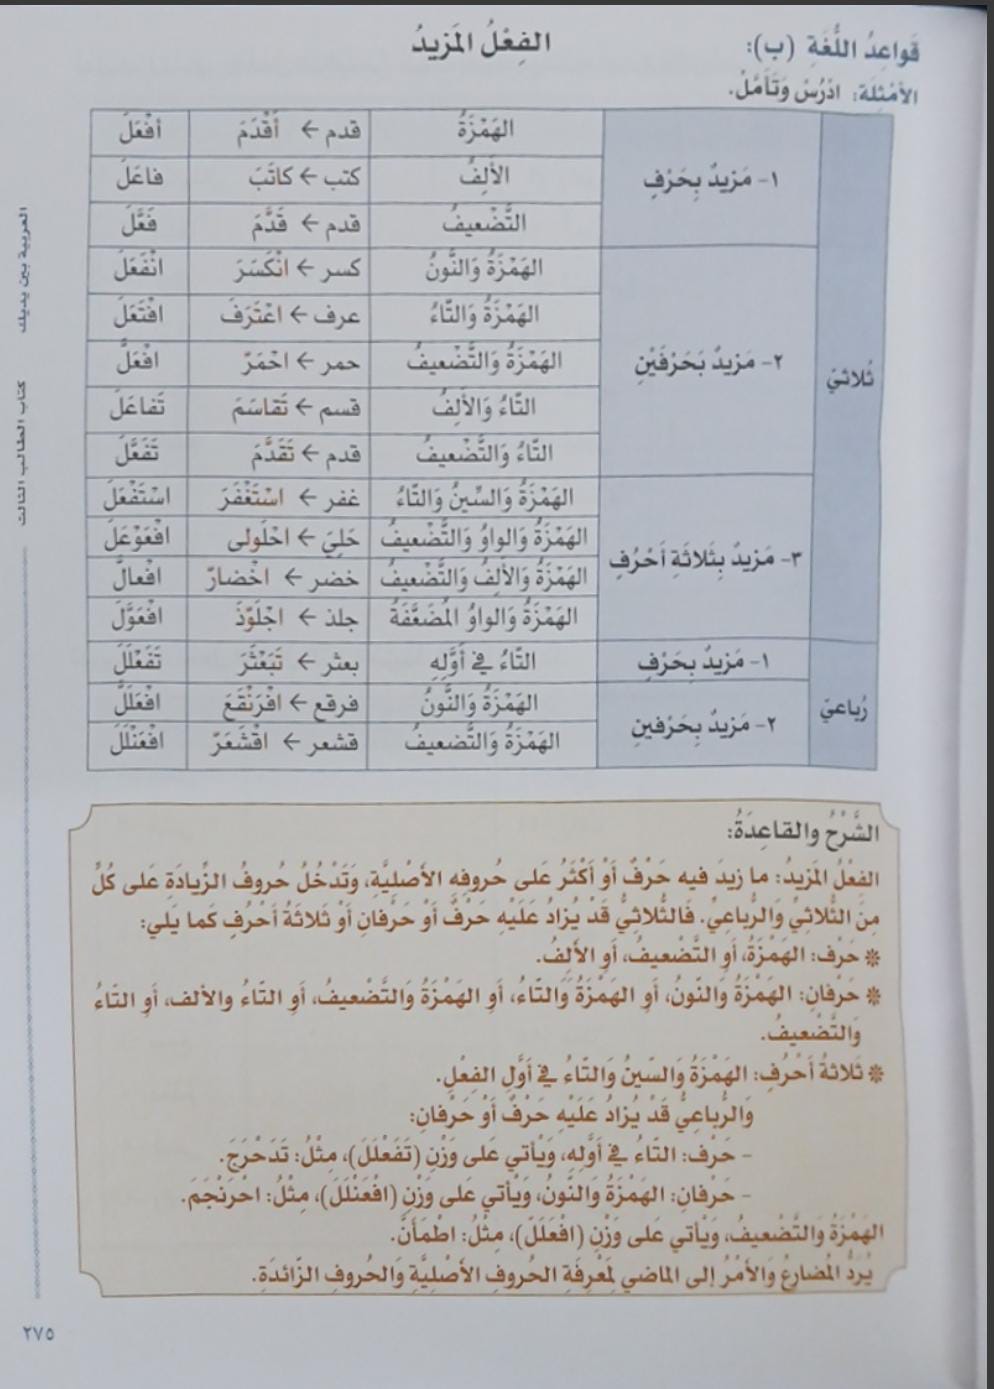 قَواعِدُ اللُّغَةِ (ب): الفِعْلُ المَزيدُ
الأَمْثِلَة: ادْرُسْ وَتَأَمَّلْ.
ثُلاثيّ
١- مَزيدٌ بِحَرْفٍ
الهَمْزَةُ قدم ← أَقْدَمَ أَفْعَلَ
الأَلِفُ كتب ← كاتَبَ فاعَلَ
التَّضْعيفُ قدم ← قَدَّمَ فَعَّلَ
٢- مَزيدٌ بَحَرْفَيْنِ
الهَمْزَةُ وَالنُّونُ كسر ← انْكَسَرَ انْفَعَلَ
الهَمْزَةُ وَالتّاءُ عرف ← اعْتَرَفَ افْتَعَلَ
الهَمْزَةُ وَالتَّضْعيفُ حمر ← احْمَرّ افْعَلَّ
التّاءُ وَالأَلِفُ قسم ← تَقاسَمَ تَفاعَلَ
التّاءُ وَالتَّضْعيفُ قدم ← تَقَدَّمَ تَفَعَّلَ
٣- مَزيدٌ بِثَلاثَةِ أَحْرُفٍ
الهَمْزَةُ وَالسِّينُ وَالتّاءُ غفر ← اسْتَغْفَرَ اسْتَفْعَلَ
الهَمْزَةُ وَالواوُ وَالتَّضْعيفُ حَلِيَ ← احْلَولى افْعَوْعَلَ
الهَمْزَةُ وَالأَلِفُ وَالتَّضْعيفُ خضر ← اخْضارّ افْعالَّ
الهَمْزَةُ وَالواوُ المُضَعَّفَةُ جلذ ← اجْلَوَّذَ افْعَوَّلَ
رُباعيّ
١- مَزيدٌ بِحَرْفٍ
التّاءُ في أَوَّلِهِ بعثر ← تَبَعْثَرَ تَفَعْلَلَ
٢- مَزيدٌ بِحَرْفَينِ
الهَمْزَةُ وَالنُّونُ فرقع ← افْرَنْقَعَ افْعَلَلَّ
الهَمْزَةُ وَالتَّضعيفُ قشعر ← اقْشَعَرّ افْعَنْلَلَ
الشَّرْحُ والقاعِدَةُ:
الفعْلُ المَزيدُ: ما زيدَ فيه حَرْفٌ أَوْ أَكْثَرُ عَلى حُروفِهِ الأَصْليَّةِ، وَتَدْخُلُ حُروفُ الزِّيادَةِ عَلى كُلٍّ
مِنَ الثُّلاثيِّ وَالرُّباعيِّ. فَالثُّلاثيُّ قَدْ يُزادُ عَلَيْهِ حَرْفٌ أَوْ حَرْفانِ أَوْ ثَلاثَةُ أَحْرُفٍ كَما يَلي:
* حَرْف: الهَمْزَةُ، أَوِ التَّضْعيفُ، أَوِ الأَلِفُ.
* حَرْفانِ: الهَمْزَةُ وَالنّونُ، أَوِ الهَمْزَةُ وَالتّاءُ، أَوِ الهَمْزَةُ وَالتَّضْعيفُ، أَوِ التّاءُ والألف، أَوِ التّاءُ
وَالتَّضْعيفُ.
* ثَلاثَةُ أَحْرُفٍ: الهَمْزَةُ وَالسّينُ وَالتّاءُ في أَوَّلِ الفِعْلِ.
وَالرُّباعيُّ قَدْ يُزادُ عَلَيْهِ حَرْفٌ أَوْ حَرْفانِ:
- حَرْف: التّاءُ في أَوَّلِهِ، وَيَأْتي عَلى وَزْنِ (تَفَعْلَلَ)، مِثْلُ: تَدَحْرَجَ.
- حَرْفانِ: الهَمْزَةُ وَالنّونُ، وَيَأْتي عَلى وَزْنِ (افْعَنْلَلَ)، مِثْلُ: احْرَنْجَمَ.
الهَمْزَةُ وَالتَّضْعيفُ، وَيَأتي عَلى وَزْنِ (افْعَلَلَّ)، مِثْلُ: اطْمَأَنَّ.
يُرَدُّ المُضارِعُ وَالأَمْرُ إلى الماضي لِمَعْرِفَةِ الحُروفِ الأَصْليَّةِ وَالحُروفِ الزّائدَةِ.
العربية بين يديك
كتاب الطالب الثالث
٢٧٥